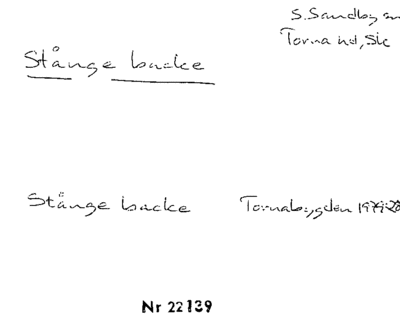 S. Sandby sn
Torna hd, Sk
Stånge backe
Stånge backe Tornabygden 1979:28
Nr 22139